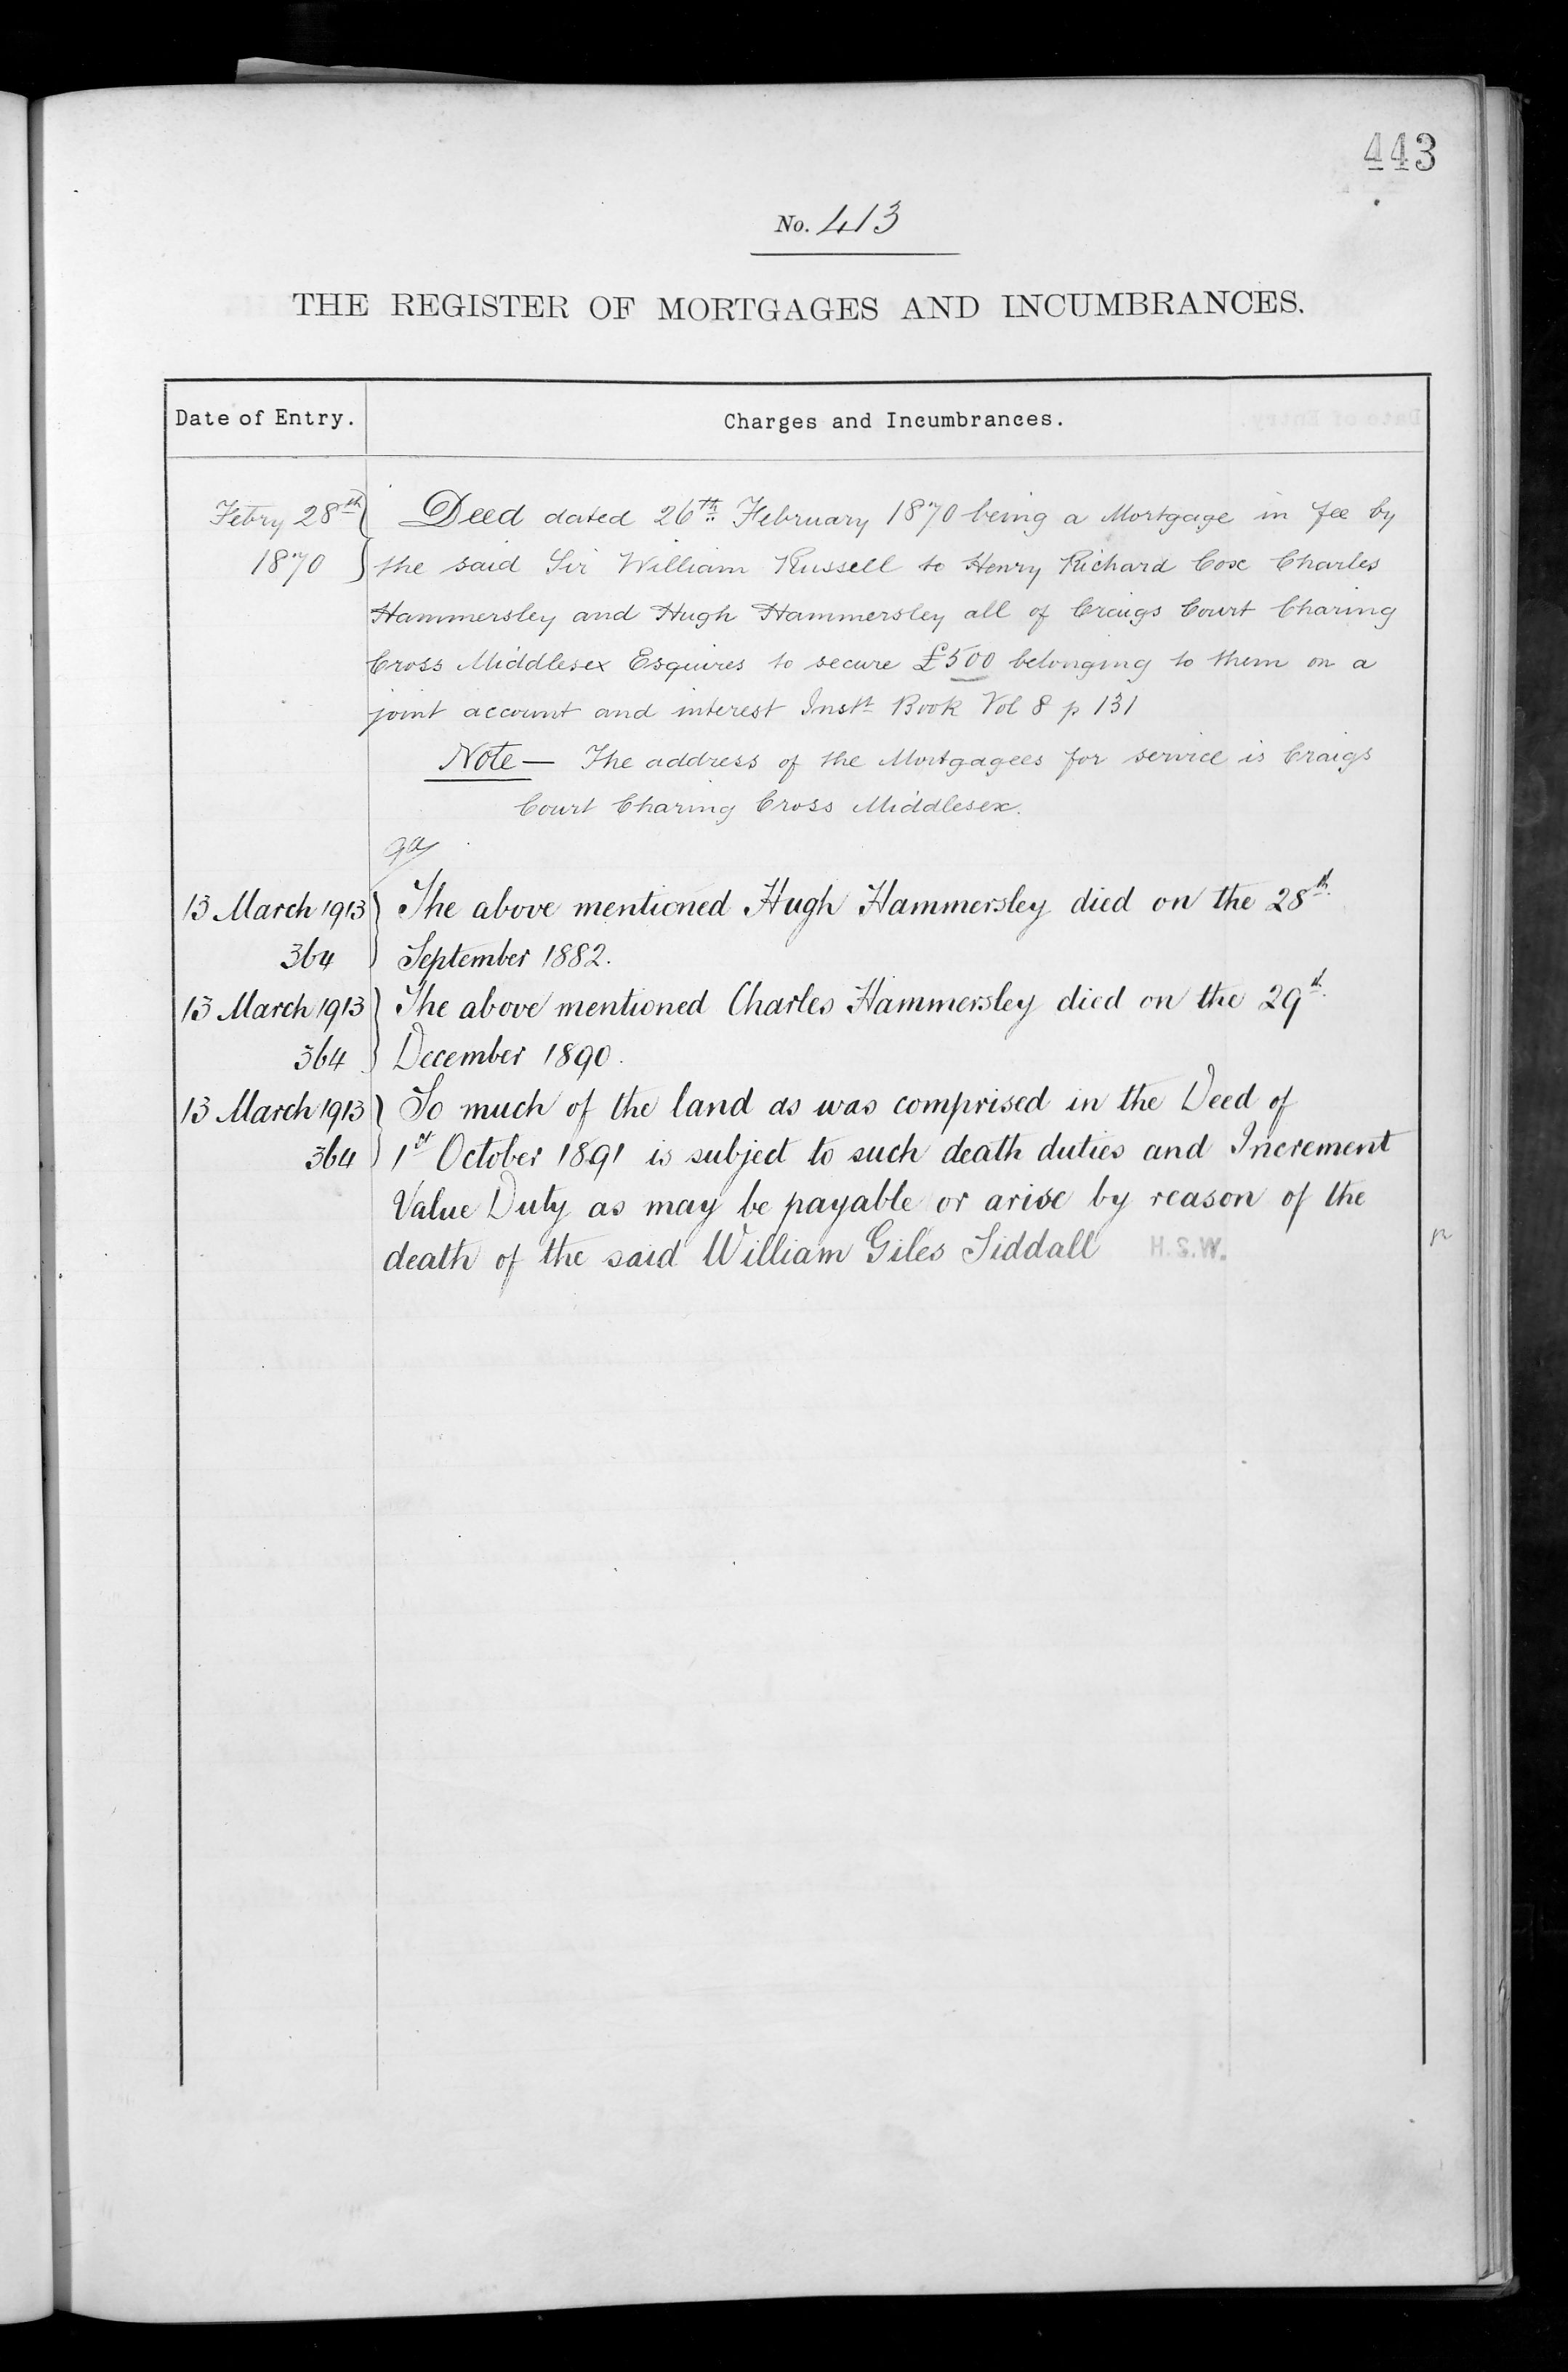 443
No. 413
THE REGISTER OF MORTGAGES AND INCUMBRANCES.
Date of Entry. Charges and Incumbrances.
Febry 28th Deed dated 26th February 1870 being a Mortgage in fee by
1870 the said Sir William Russell to Henry Richard Cox Charles
Hammersley and Hugh Hammersley all of Craigs Court Charing
Cross Middlesex Esquires to secure £500 belonging to them on a
joint account and interest Instt Book Vol 8 p 131
Note — The address of the Mortgagees for service is Craigs
Court Charing Cross Middlesex.
13 March 1913 The above mentioned Hugh Hammersley died on the 28th
364 September 1882.
13 March 1913 The above mentioned Charles Hammersley died on the 29th
364 December 1890.
13 March 1913 So much of the land as was comprised in the Deed of
364 1st October 1891 is subject to such death duties and Increment
Value Duty as may be payable or arise by reason of the
death of the said William Giles Siddall H.S.W.